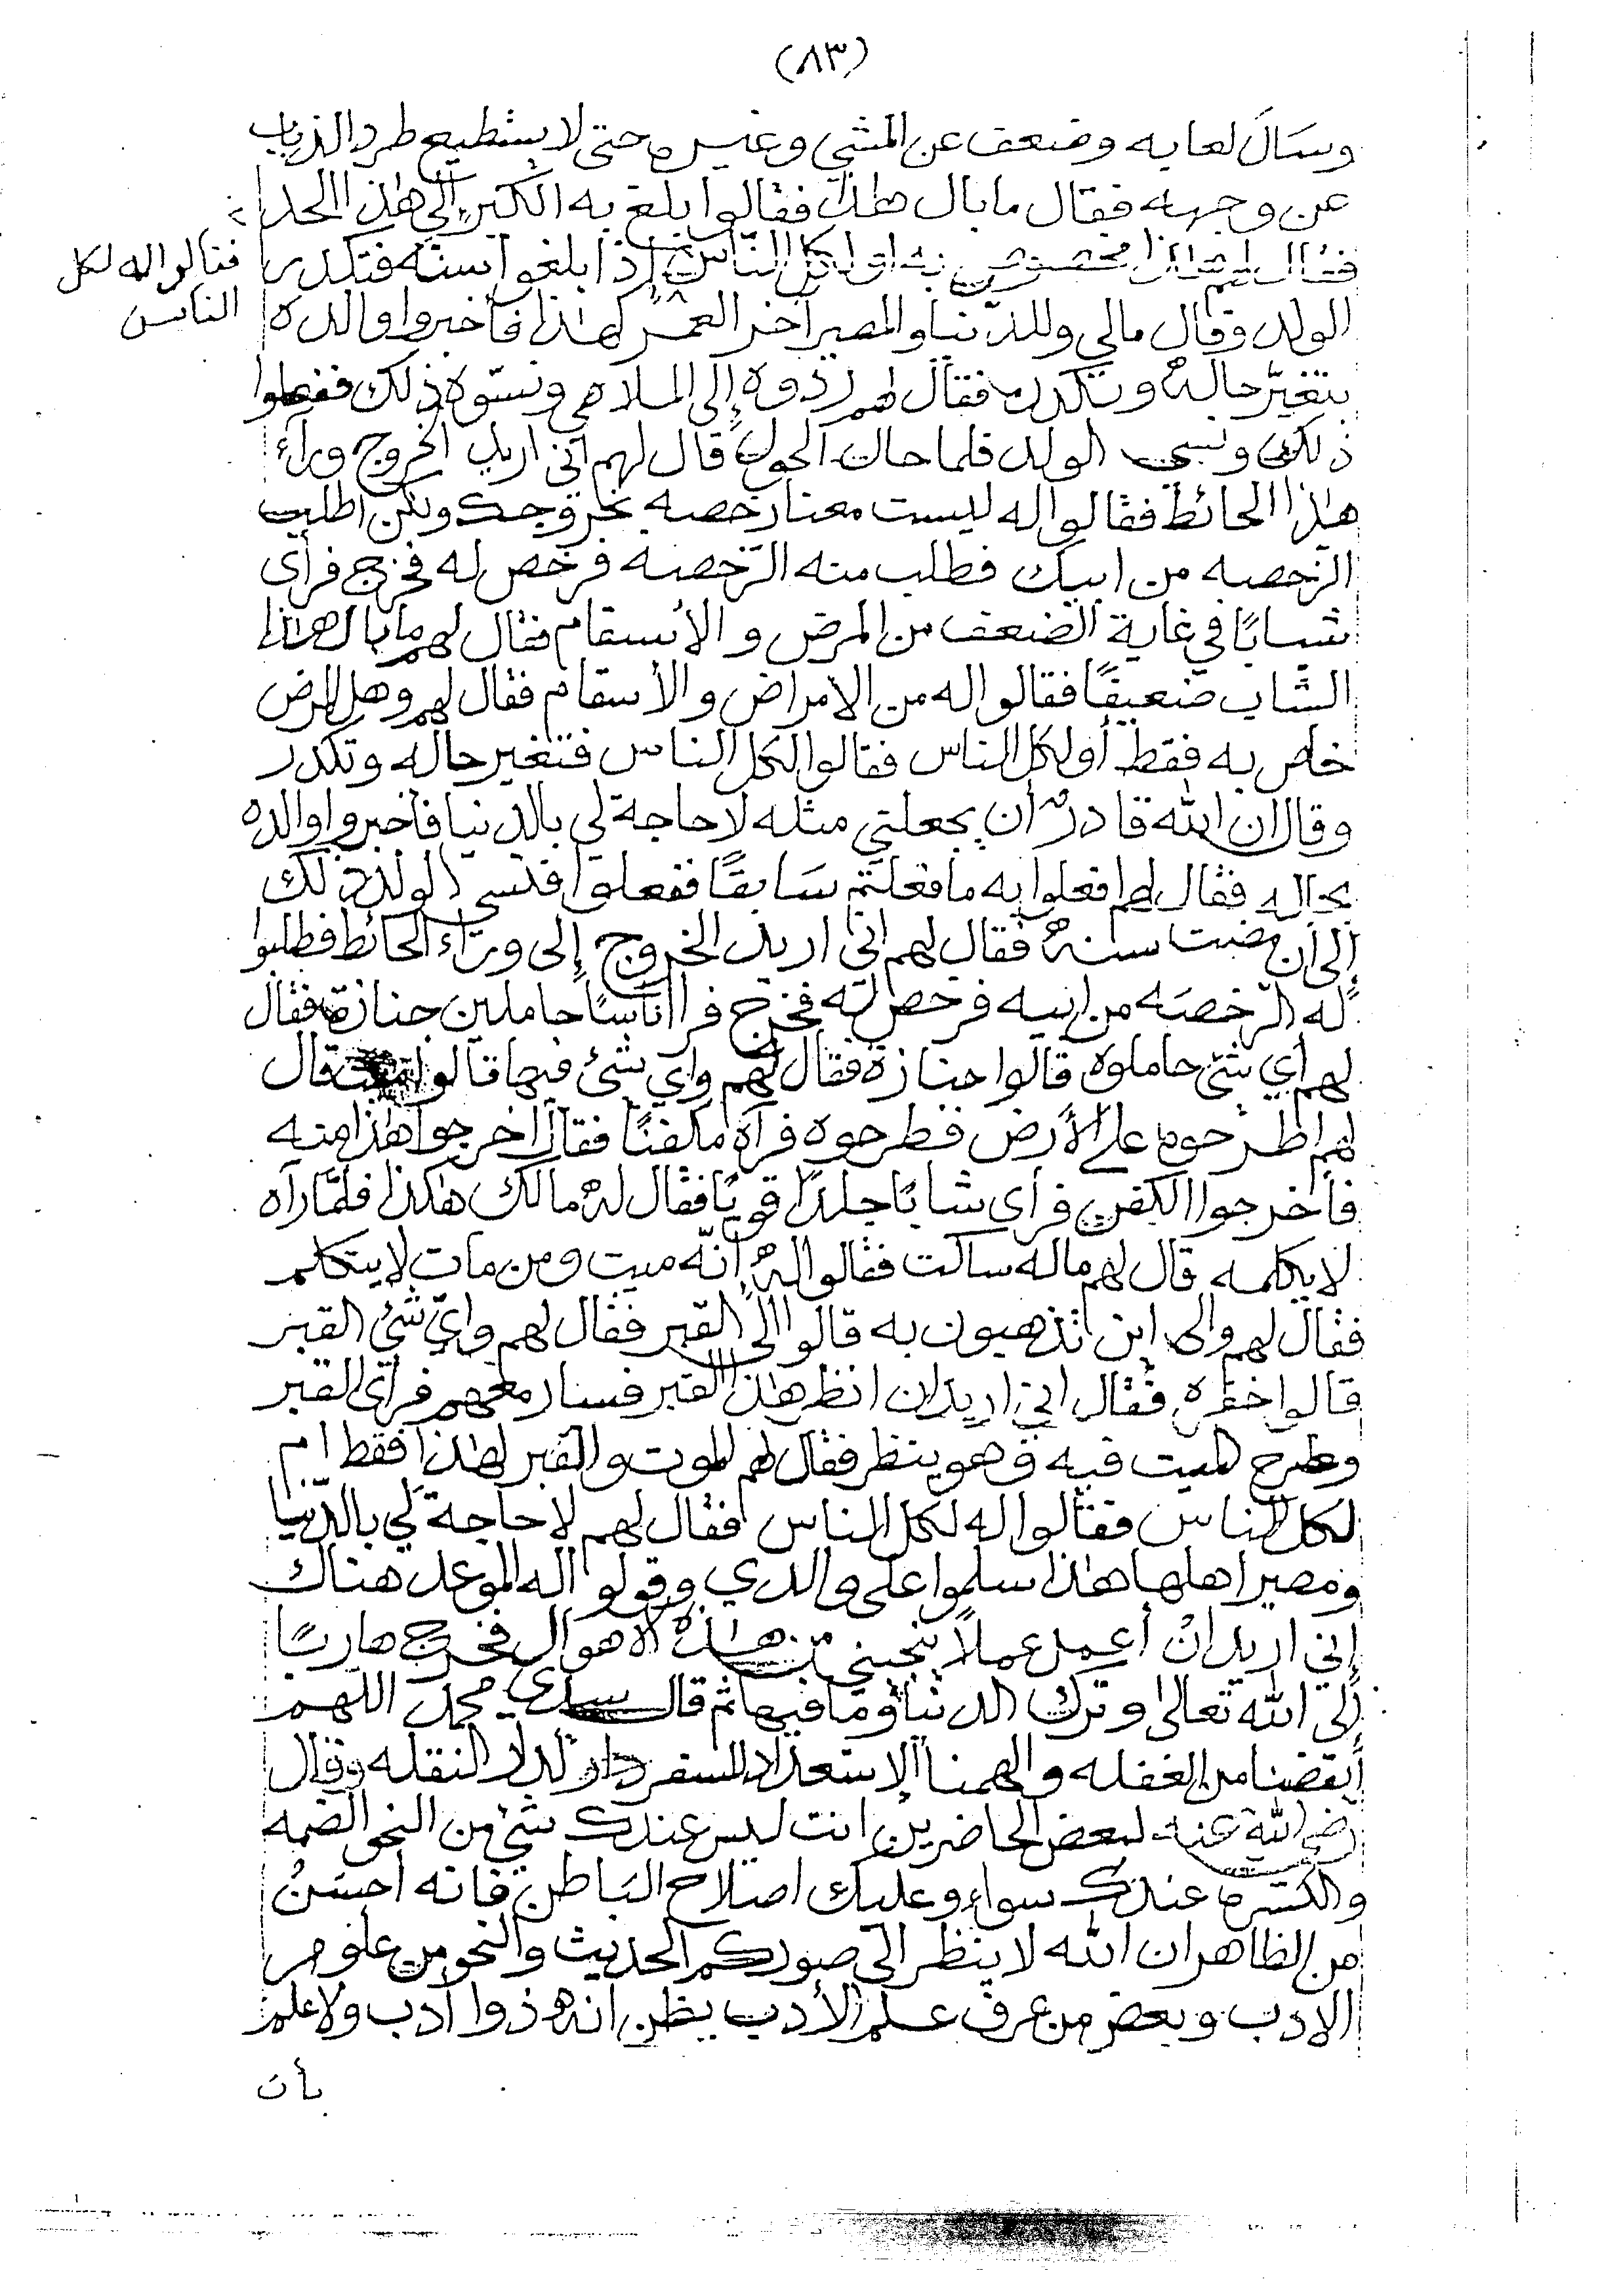 (٨٣)
وسَالَ لعابه وضعف عن المشي وغيره حتى لا يستطيع طرد الذباب
عن وجهه فقال ما بال هذا فقالوا بلغ به الكبر إلى هذا الحد
فقال لهم هذا مخصوص به او لكل الناس إذا بلغوا سنه فتكدر
فقالوا له لكل
الناس
الولد وقال مالي وللدنيا والمصير آخر العمر كهذا فأخبروا والده
بتغيّر حاله وتكدره فقال لهم ردوه إلى الملاهي ونسّوه ذلك ففعلوا
ذلك ونسي الولد فلما حال الحول قال لهم اني اريد الخروج ورآء
هذا الحائط فقالوا له ليست معنا رخصه بخروجك ولكن اطلب
الرخصه من ابيك فطلب منه الرخصه فرخص له فخرج فرأى
شابًا في غاية الضعف من المرض والأسقام فقال لهم ما بال هذا
الشاب ضعيفًا فقالوا له من الامراض والأسقام فقال لهم وهل المرض
خاص به فقط أو لكل الناس فقالوا لكل الناس فتغير حاله وتكدر
وقال ان الله قادرٌ أن يجعلني مثله لا حاجة لي بالدنيا فأخبروا والده
بحاله فقال لهم افعلوا به ما فعلتم سَابقًا ففعلوا فنسي الولد ذلك
إلى أن مضت سنةٌ فقال لهم اني اريد الخروج إلى ورآء الحائط فطلبوا
له الرخصَه من ابيه فرخص له فخرج فرا اناسًا حاملين جنازة فقال
لهم أي شئ حاملوه قالوا جنازة فقال لهم واي شئ فيها قالوا ميت قال
لهم اطرحوه على الأرض فطرحوه فرآه مكفنًا فقال أخرجوا هذا منه
فأخرجوا الكفن فرأى شابًا جلدًا قويًا فقال لهُ مالك هكذا فلمَّا رآه
لا يكلمه قال لهم ماله ساكت فقالوا لهُ إنّه ميت ومن مات لا يتكلم
فقال لهم والى اين تذهبون به قالوا الى القبر فقال لهم وايّ شئ القبر
قالوا حفره فقال اني اريد ان انظر هذا القبر فسار معهم فرأى القبر
وطرح الميت فيه وهو ينظر فقال لهم الموت والقبر لهذا فقط ام
لكل الناس فقالوا له لكل الناس فقال لهم لا حاجة لي بالدنيا
ومصير اهلها هذا سلموا على والدي وقولوا له الموعد هناك
إني اريد انْ أعمل عملًا ينجيني من هذه الأهوال فخرج هاربًا
إلى الله تعالى وترك الدنيا وما فيها ثم قال سيدي محمد اللهم
أيقضنا من الغفله والهمنا الإستعداد للسفر من دار لدار النقله وقال
رضي الله عنه لبعض الحاضرين انت ليس عندك شئ من النحو الضمه
والكسره عندك سواء وعليك اصلاح البَاطن فانه احسَنُ
من الظاهر ان الله لا ينظر الى صوركم الحديث والنحو من علوم
الادب وبعض من عرف علم الأدب يظن انه ذوا أدب ولا علم
بأن